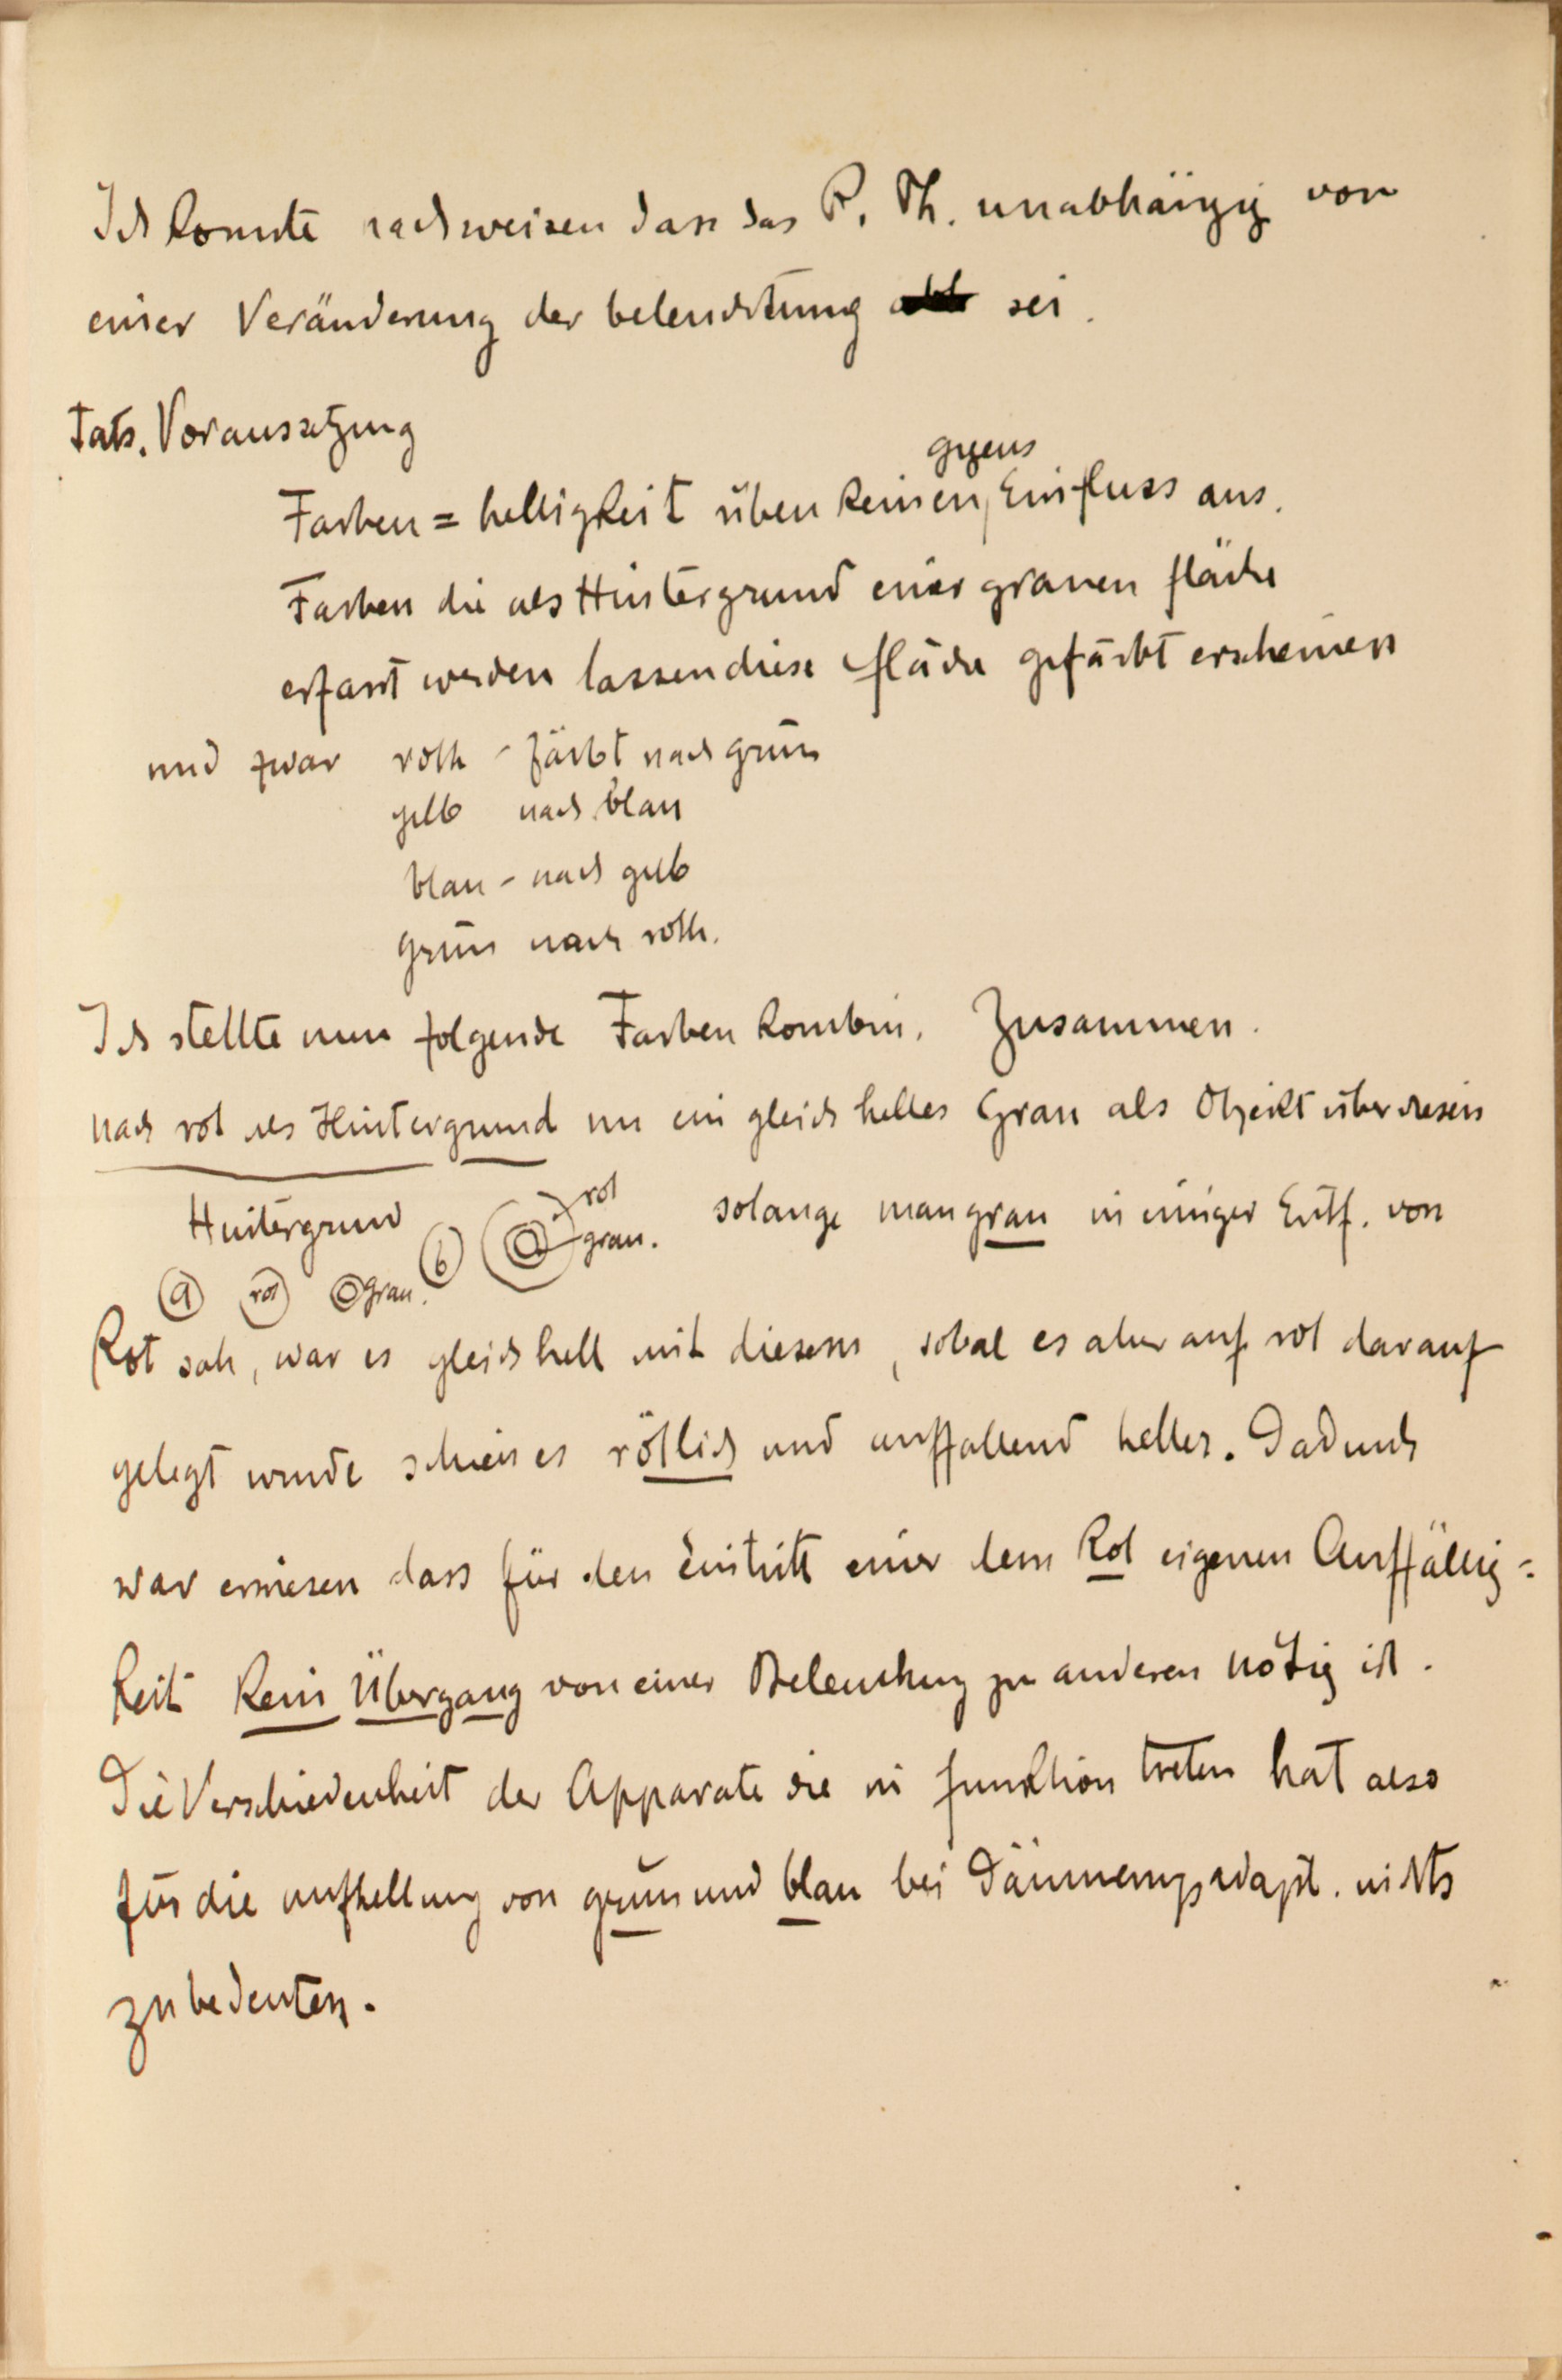 Ich konnte nachweisen dass das P. Ph. unabhängig von
einer Veränderung der beleuchtung sei.
Tats. Voraussetzung
gegens
Farben = helligkeit üben keinen Einfluss aus.
Farben die als Hintergrund einer grauen fläche
erfasst werden lassen diese fläche gefärbt erscheinen
und zwar roth - färbt nach grün
gelb nach blau
blau - nach gelb
grün nach roth.
Ich stellte nun folgende Farben kombin. Zusammen.
nach rot als Hintergrund nu ein gleich helles Grau als Objekt über diesen
Hintergrund
rot
grau.
solange man grau in einiger Entf. von
a rot grau. b
Rot sah, war es gleich hell mit diesem, sobal es aber auf rot darauf
gelegt wurde schien es rötlich und auffallend heller. Dadurch
war erwiesen dass für den Eintritt einer dem Rot eigenen Auffällig=
keit kein Übergang von einer Beleuchtung zu anderen nötig ist.
Die Verschiedenheit der Apparate die in funktion treten hat also
für die aufhellung von grün und blau bei Dämmerungsadapt. nichts
zu bedeuten.